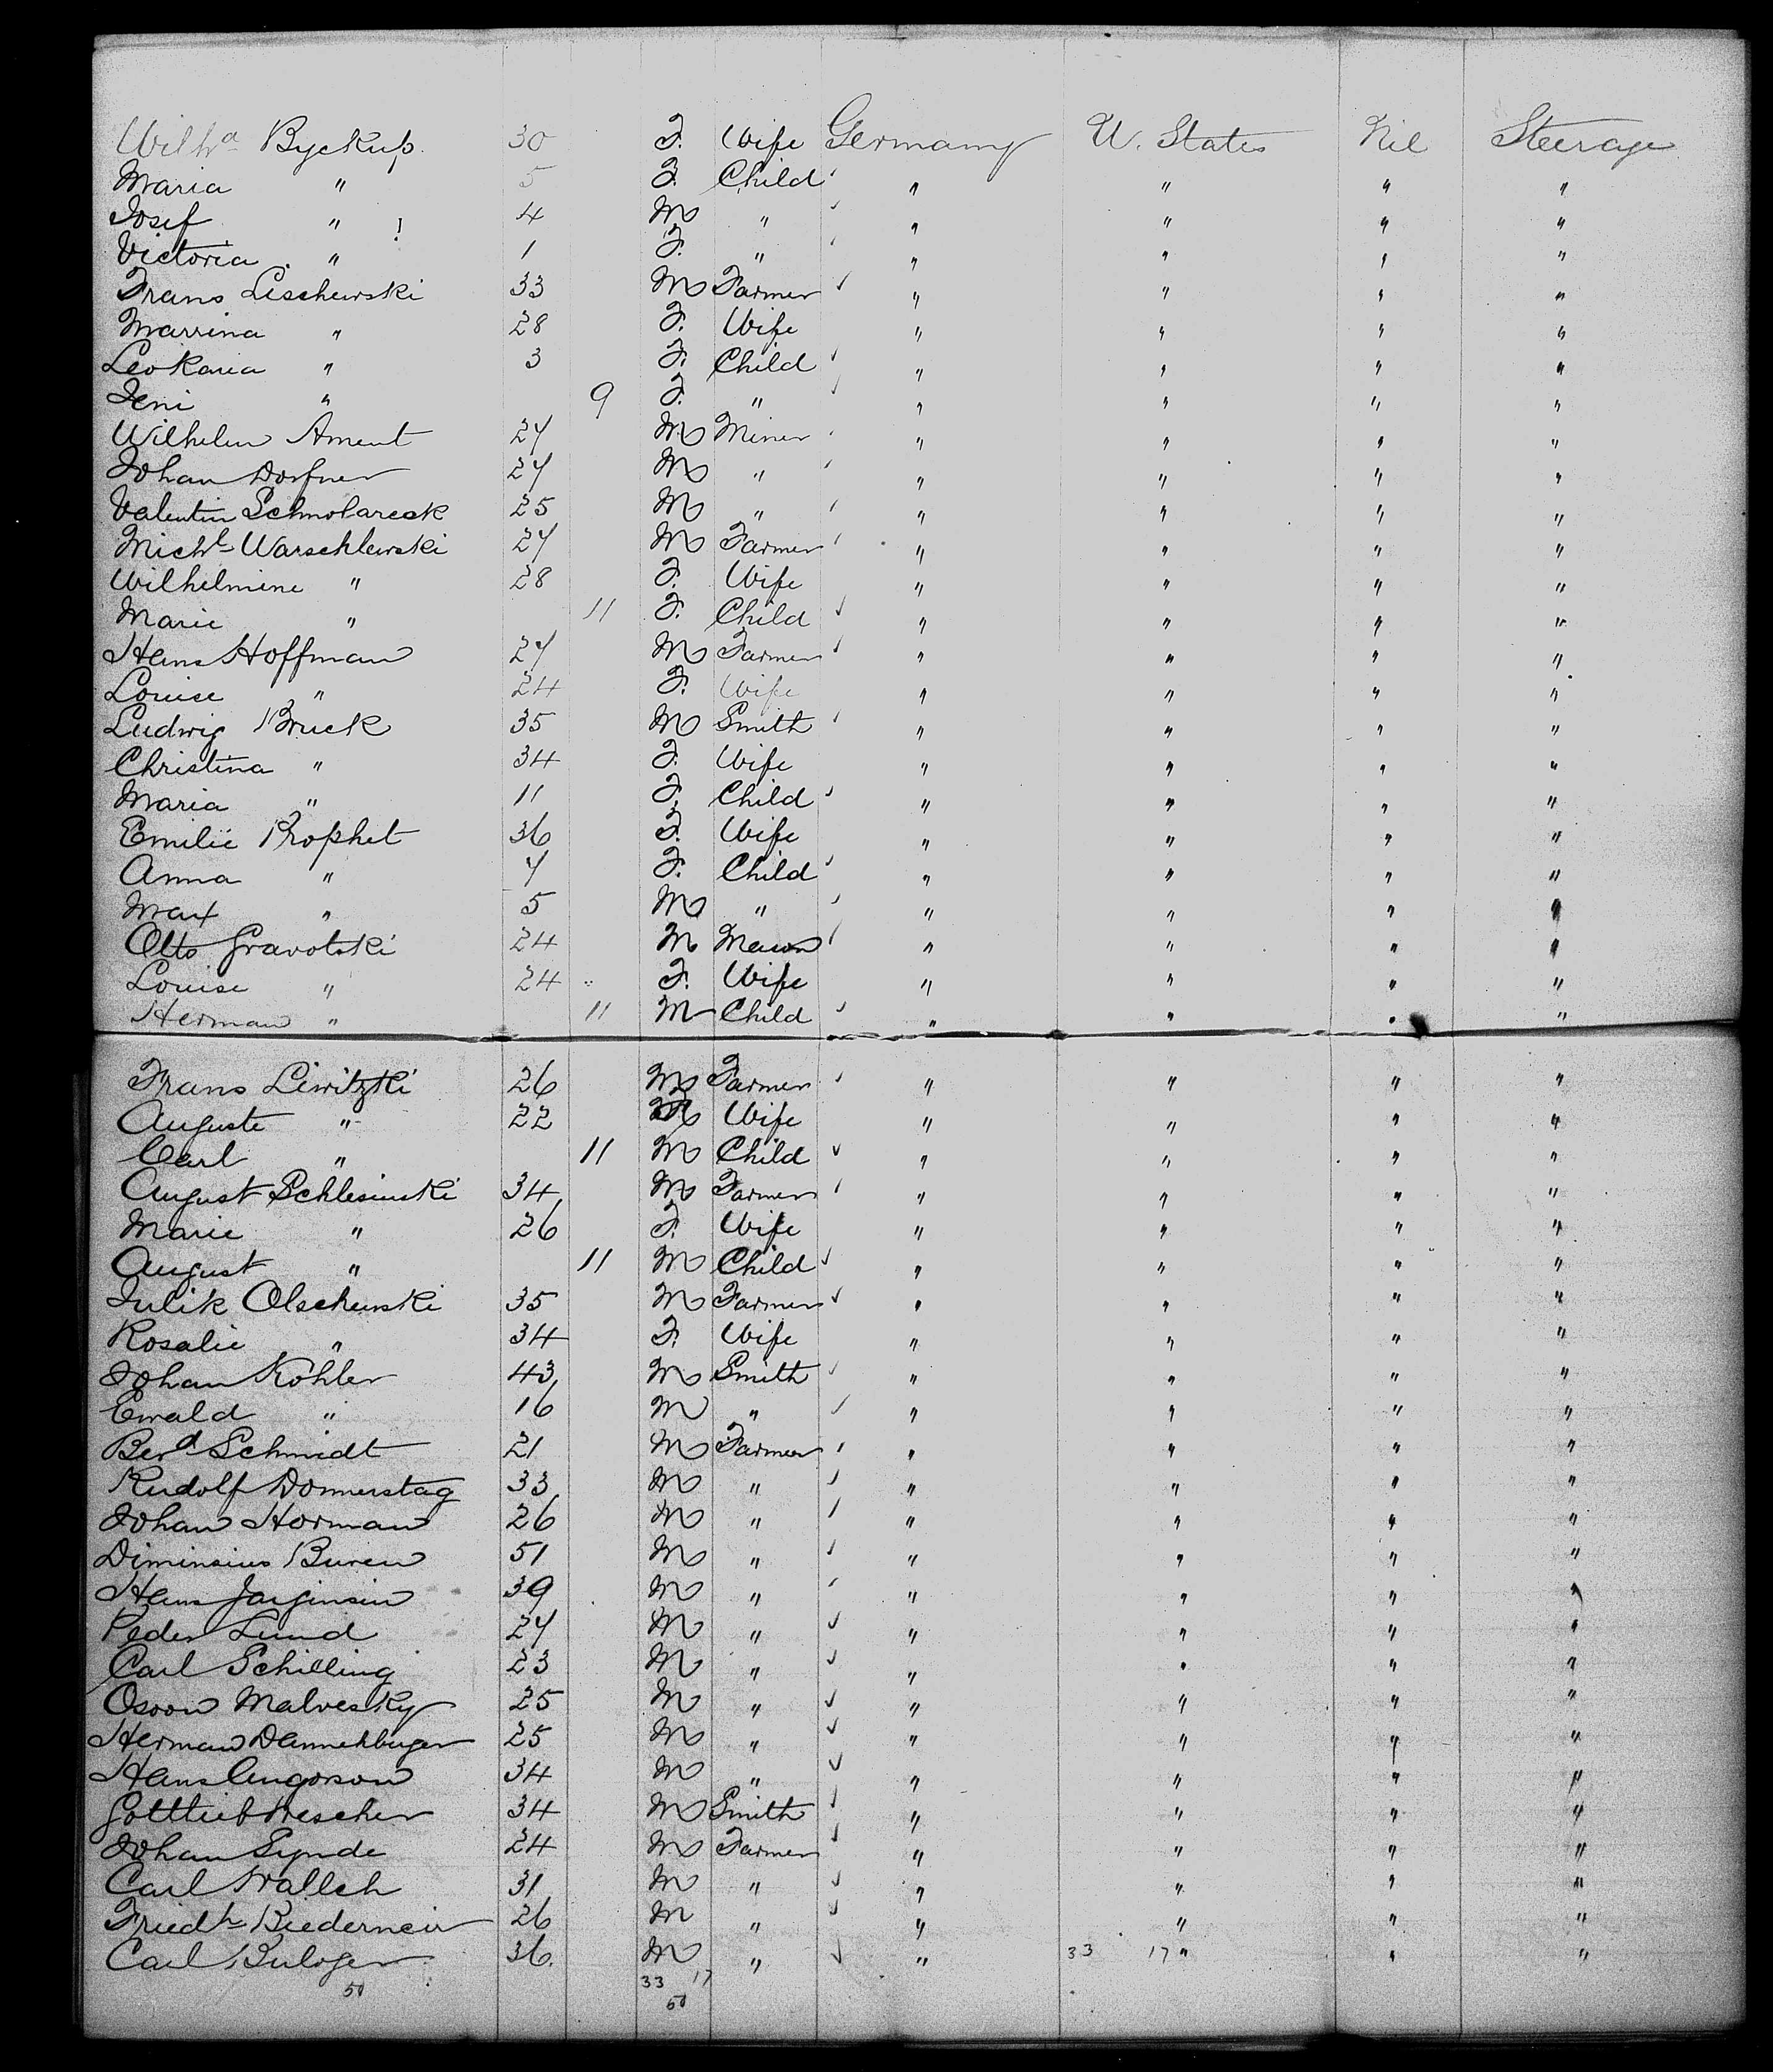 Wilhᵃ Byckup. 30 F. Wife Germany U. States Nil Steerage
Maria " 5 F. Child " " " "
Josef " 4 M " " " " "
Victoria " 1 F. " " " " "
Frans Lischewski 33 M Farmer " " " "
Marrina " 28 F. Wife " " " "
Leokaria " 3 F. Child " " " "
Jeni " 9 F. " " " " "
Wilhelm Ament 27 M Miner " " " "
Johan Dorfner 27 M " " " " "
Valentin Schmolareck 25 M " " " " "
Michˡ Warschlewski 27 M Farmer " " " "
Wilhelmine " 28 F. Wife " " " "
Marie " 11 F. Child " " " "
Hans Hoffman 27 M Farmer " " " "
Louise " 24 F. Wife " " " "
Ludwig Bruck 35 M Smith " " " "
Christina " 34 F. Wife " " " "
Maria " 11 F. Child " " " "
Emilie Prophet 36 F. Wife " " " "
Anna " 7 F. Child " " " "
Max " 5 M " " " " "
Otto Gravotski 24 M Mason " " " "
Louise " 24 F. Wife " " " "
Herman " 11 M Child " " " "
Frans Liwitzki 26 M Farmer " " " "
Auguste " 22 F Wife " " " "
Carl " 11 M Child " " " "
August Schlesinski 34 M Farmer " " " "
Marie " 26 F. Wife " " " "
August " 11 M Child " " " "
Julik Olschewski 35 M Farmer " " " "
Rosalie " 34 F. Wife " " " "
Johan Kohler 43 M Smith " " " "
Ewald " 16 M " " " " "
Berᵈ Schmidt 21 M Farmer " " " "
Rudolf Donnerstag 33 M " " " " "
Johan Horman 26 M " " " " "
Diminsius Buren 51 M " " " " "
Hans Jarginsin 39 M " " " " "
Peder Lund 27 M " " " " "
Carl Schilling 23 M " " " " "
Osoon Malvesky 25 M " " " " "
Herman Dannehburger 25 M " " " " "
Hans Angorson 34 M " " " " "
Gottlieb Drescher 34 M Smith " " " "
Johan Synde 24 M Farmer " " " "
Carl Walleh 31 M " " " " "
Friedʰ Biedermeir 26 M " " " " "
Carl Buloger 36. M " " 33 17 " " "
50 33 17
50